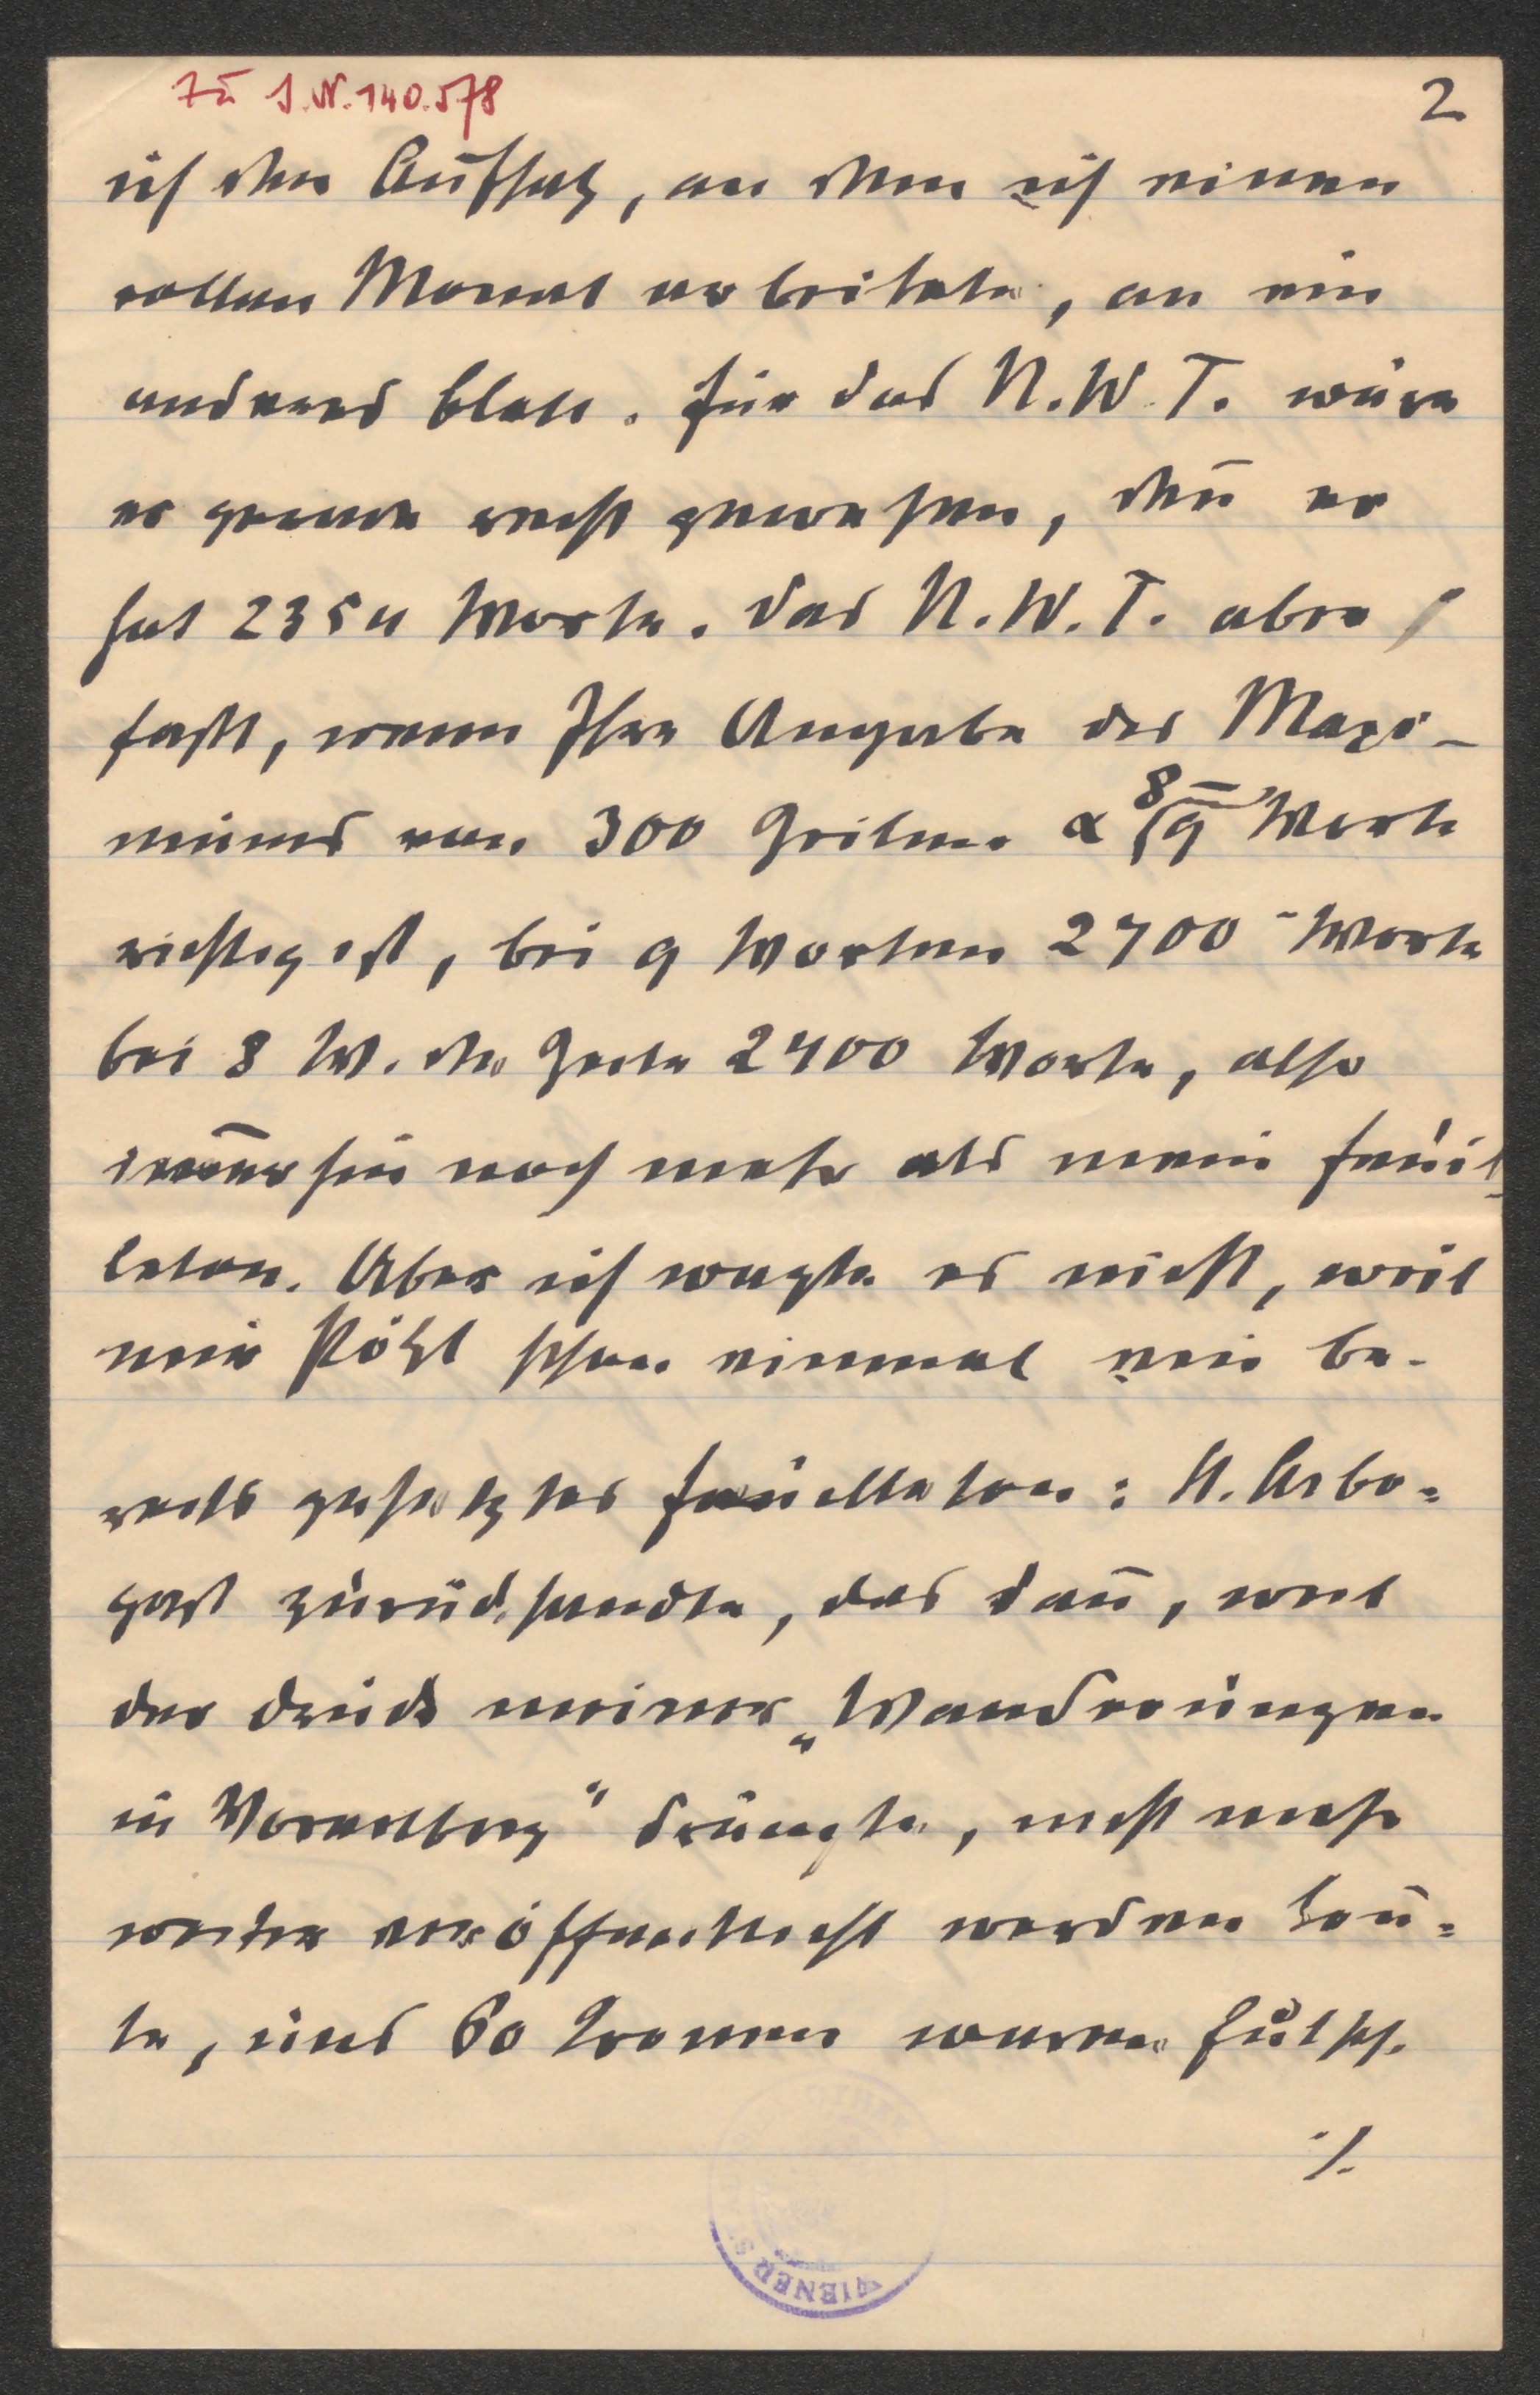 Zu I.N. 140.578
2
ich den Aufsatz, an dem ich einen
vollen Monat arbeitete, an ein
anderes Blatt. Für das N.W.T. wäre
er gerade recht gewesen, den̄ er
hat 2354 Worte. Das N.W.T. aber
faßt, wenn Ihre Angabe des Maxi-
mums von 300 Zeilen à 8–9 Worte
richtig ist, bei 9 Worten 2700 Worte
bei 8 W. die Zeile 2400 Worte, also
im̄erhin noch mehr als mein Feuil-
leton. Aber ich wagte es nicht, weil
mir Pötzl schon einmal ein be-
reits gesetztes Feuilleton: St. Arbo-
gast zurücksandte, das dan̄, weil
der Druck meiner „Wanderungen
in Vorarlberg" drängte, nicht mehr
weiter veröffentlicht werden kon̄-
te, und 60 Kronen waren futsch.
./.
WIENER S